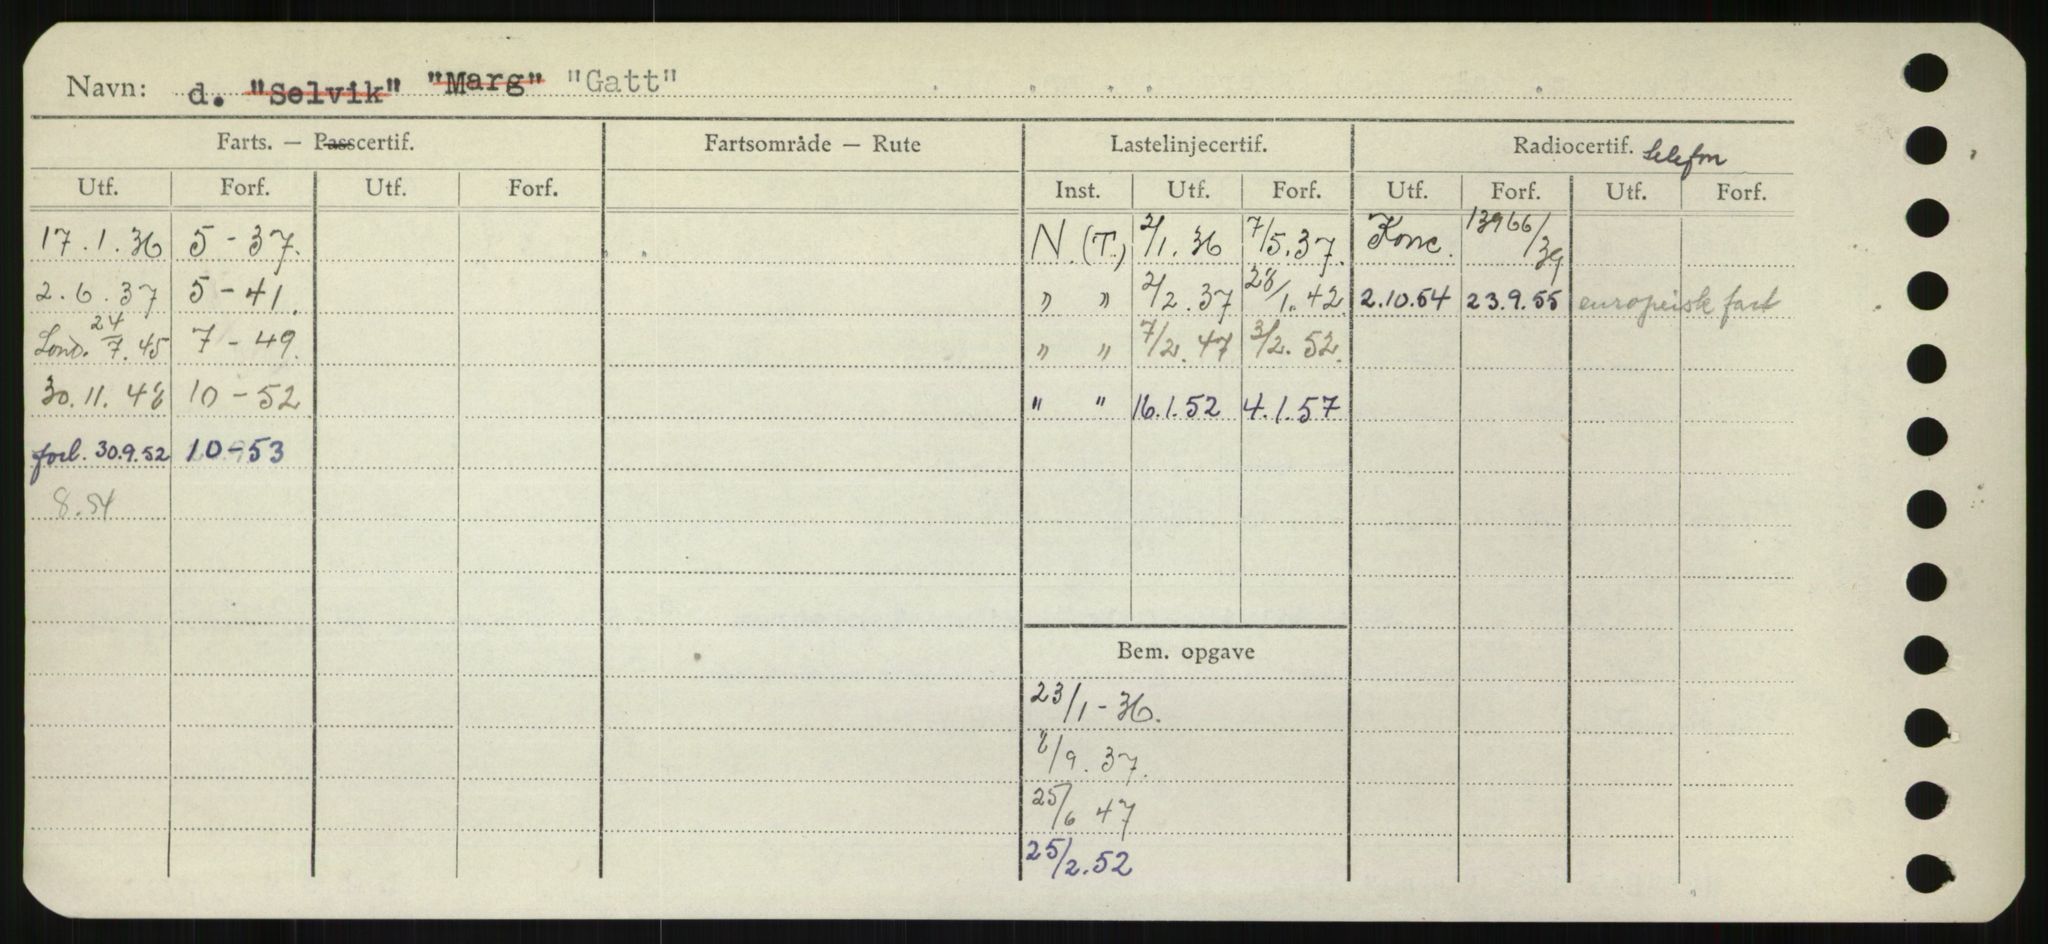 Navn: d. "Selvik" "Marg" "Gatt"
Farts. — Passcertif. Fartsområde — Rute Lastelinjecertif. Radiocertif. telefon
Utf. Forf. Utf. Forf. Inst. Utf. Forf. Utf. Forf. Utf. Forf.
17.1.36 5-37. N.(T.) 2/1.36 7/5.37. Konc. 13966/39
2.6.37 5-41. " " 2/2.37 28/1.42. 2.10.54 23.9.55 europeisk fart
Lond. 24/7.45 7-49. " " 7/2.47 3/2.52.
30.11.48 10-52 " " 16.1.52 4.1.57
forl. 30.9.52 10-53
8.54
Bem. opgave
23/1-36.
8/9.37.
25/6 47
25/2.52